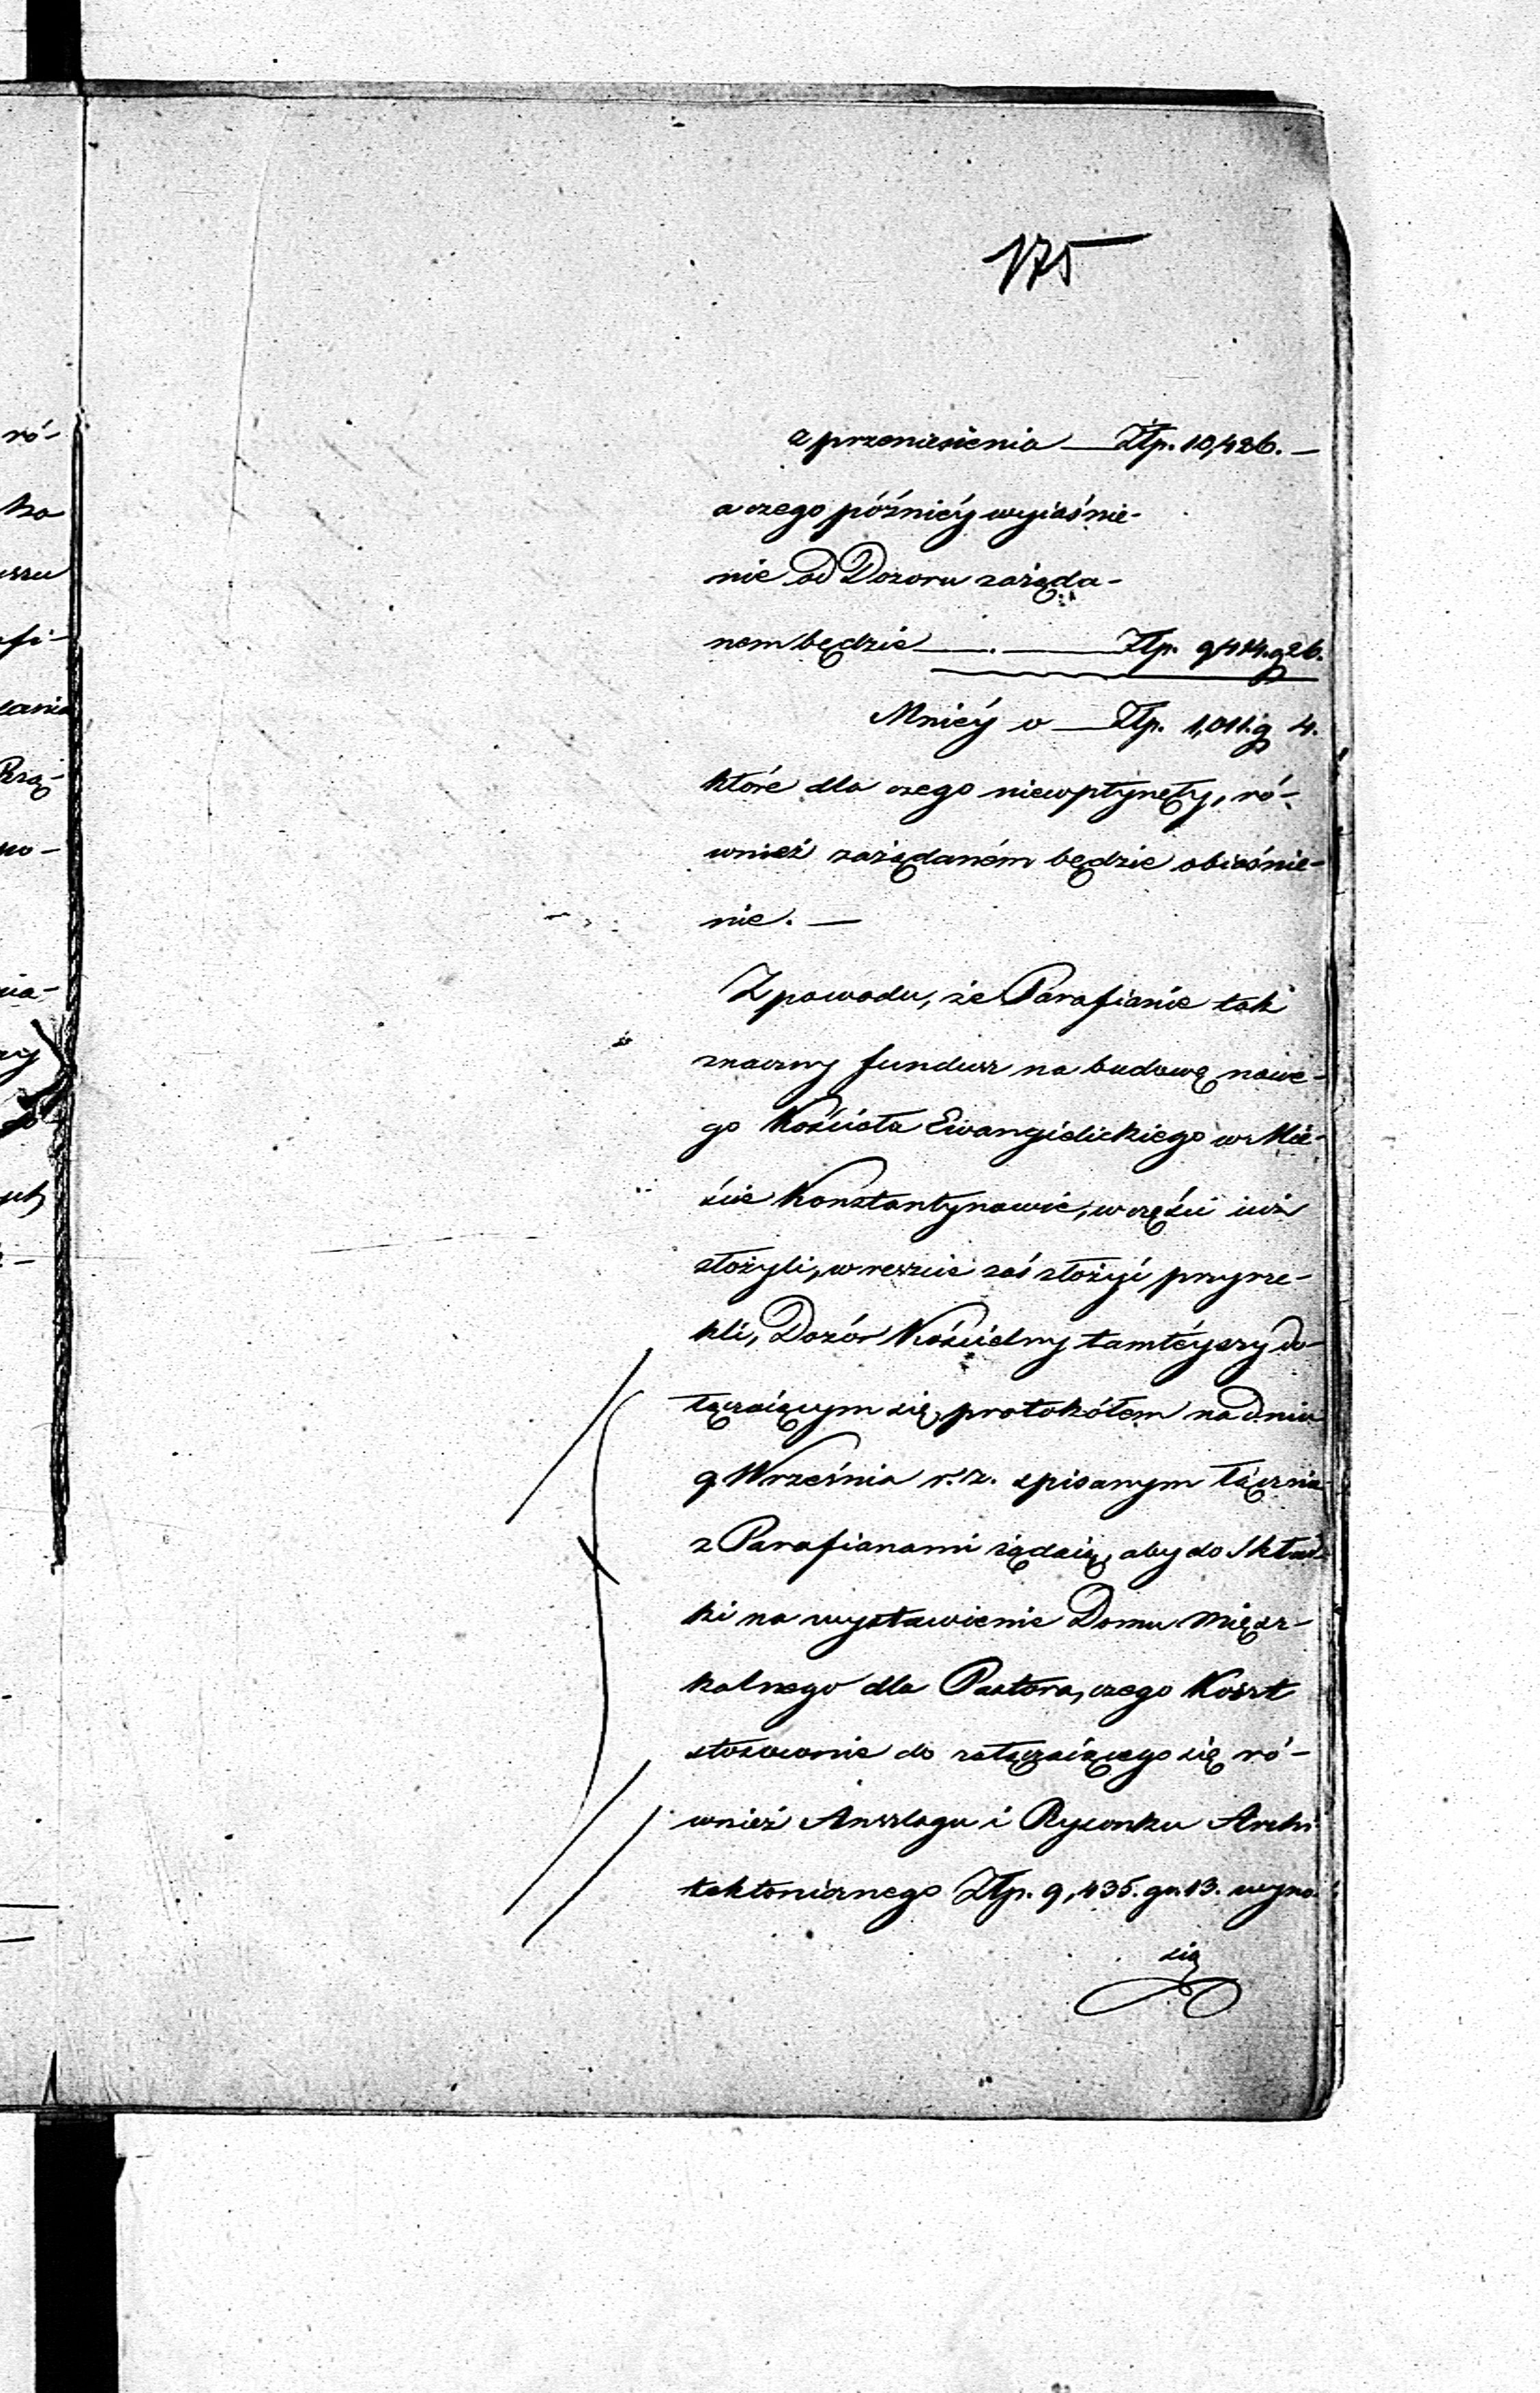 175
z przeniesienia — Złp. 10,426. —
a czego późniéy wyiaśnie-
nie od Dozoru zażąda-
nem będzie — . — Złp. 9414. g 26.
Mniéy o — Złp. 1,011. g 4.
które dla czego niewpłynęły, ró-
wnież zażądaném będzie obiaśnie-
nie. —
Z powodu, że Parafianie tak
znaczny fundusz na budowę nowe-
go Kościoła Ewangielickiego w Mie-
ście Konstantynowie, w części iuż
złożyli, w reszcie zaś złożyć przyrze-
kli, Dozór Kościelny tamtéyszy do-
łączaiącym się protokółem na dniu
9 Września r. z. spisanym łącznie
z Parafianami żądaią, aby do Skład-
ki na wystawienie Domu miesz-
kalnego dla Pastora, czego Koszt
stosownie do załączaiącego się ró-
wnież Anszlagu i Rysunku Archi
tektonicznego Złp. 9,435. gr. 13. wyno-
sią
ró-
ko
szu
afi-
zania
Rzą-
no-